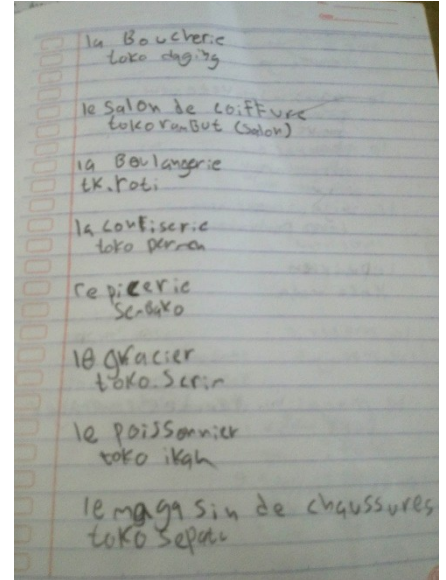 la Boucherie
toko daging
le Salon de coiffure
toko rambut (Salon)
la Boulangerie
tk. roti
la confiserie
toko permen
l'epicerie
Sembako
le glacier
toko. Scrim
le poissonnier
toko ikan
le magasin de chaussures
toko sepatu